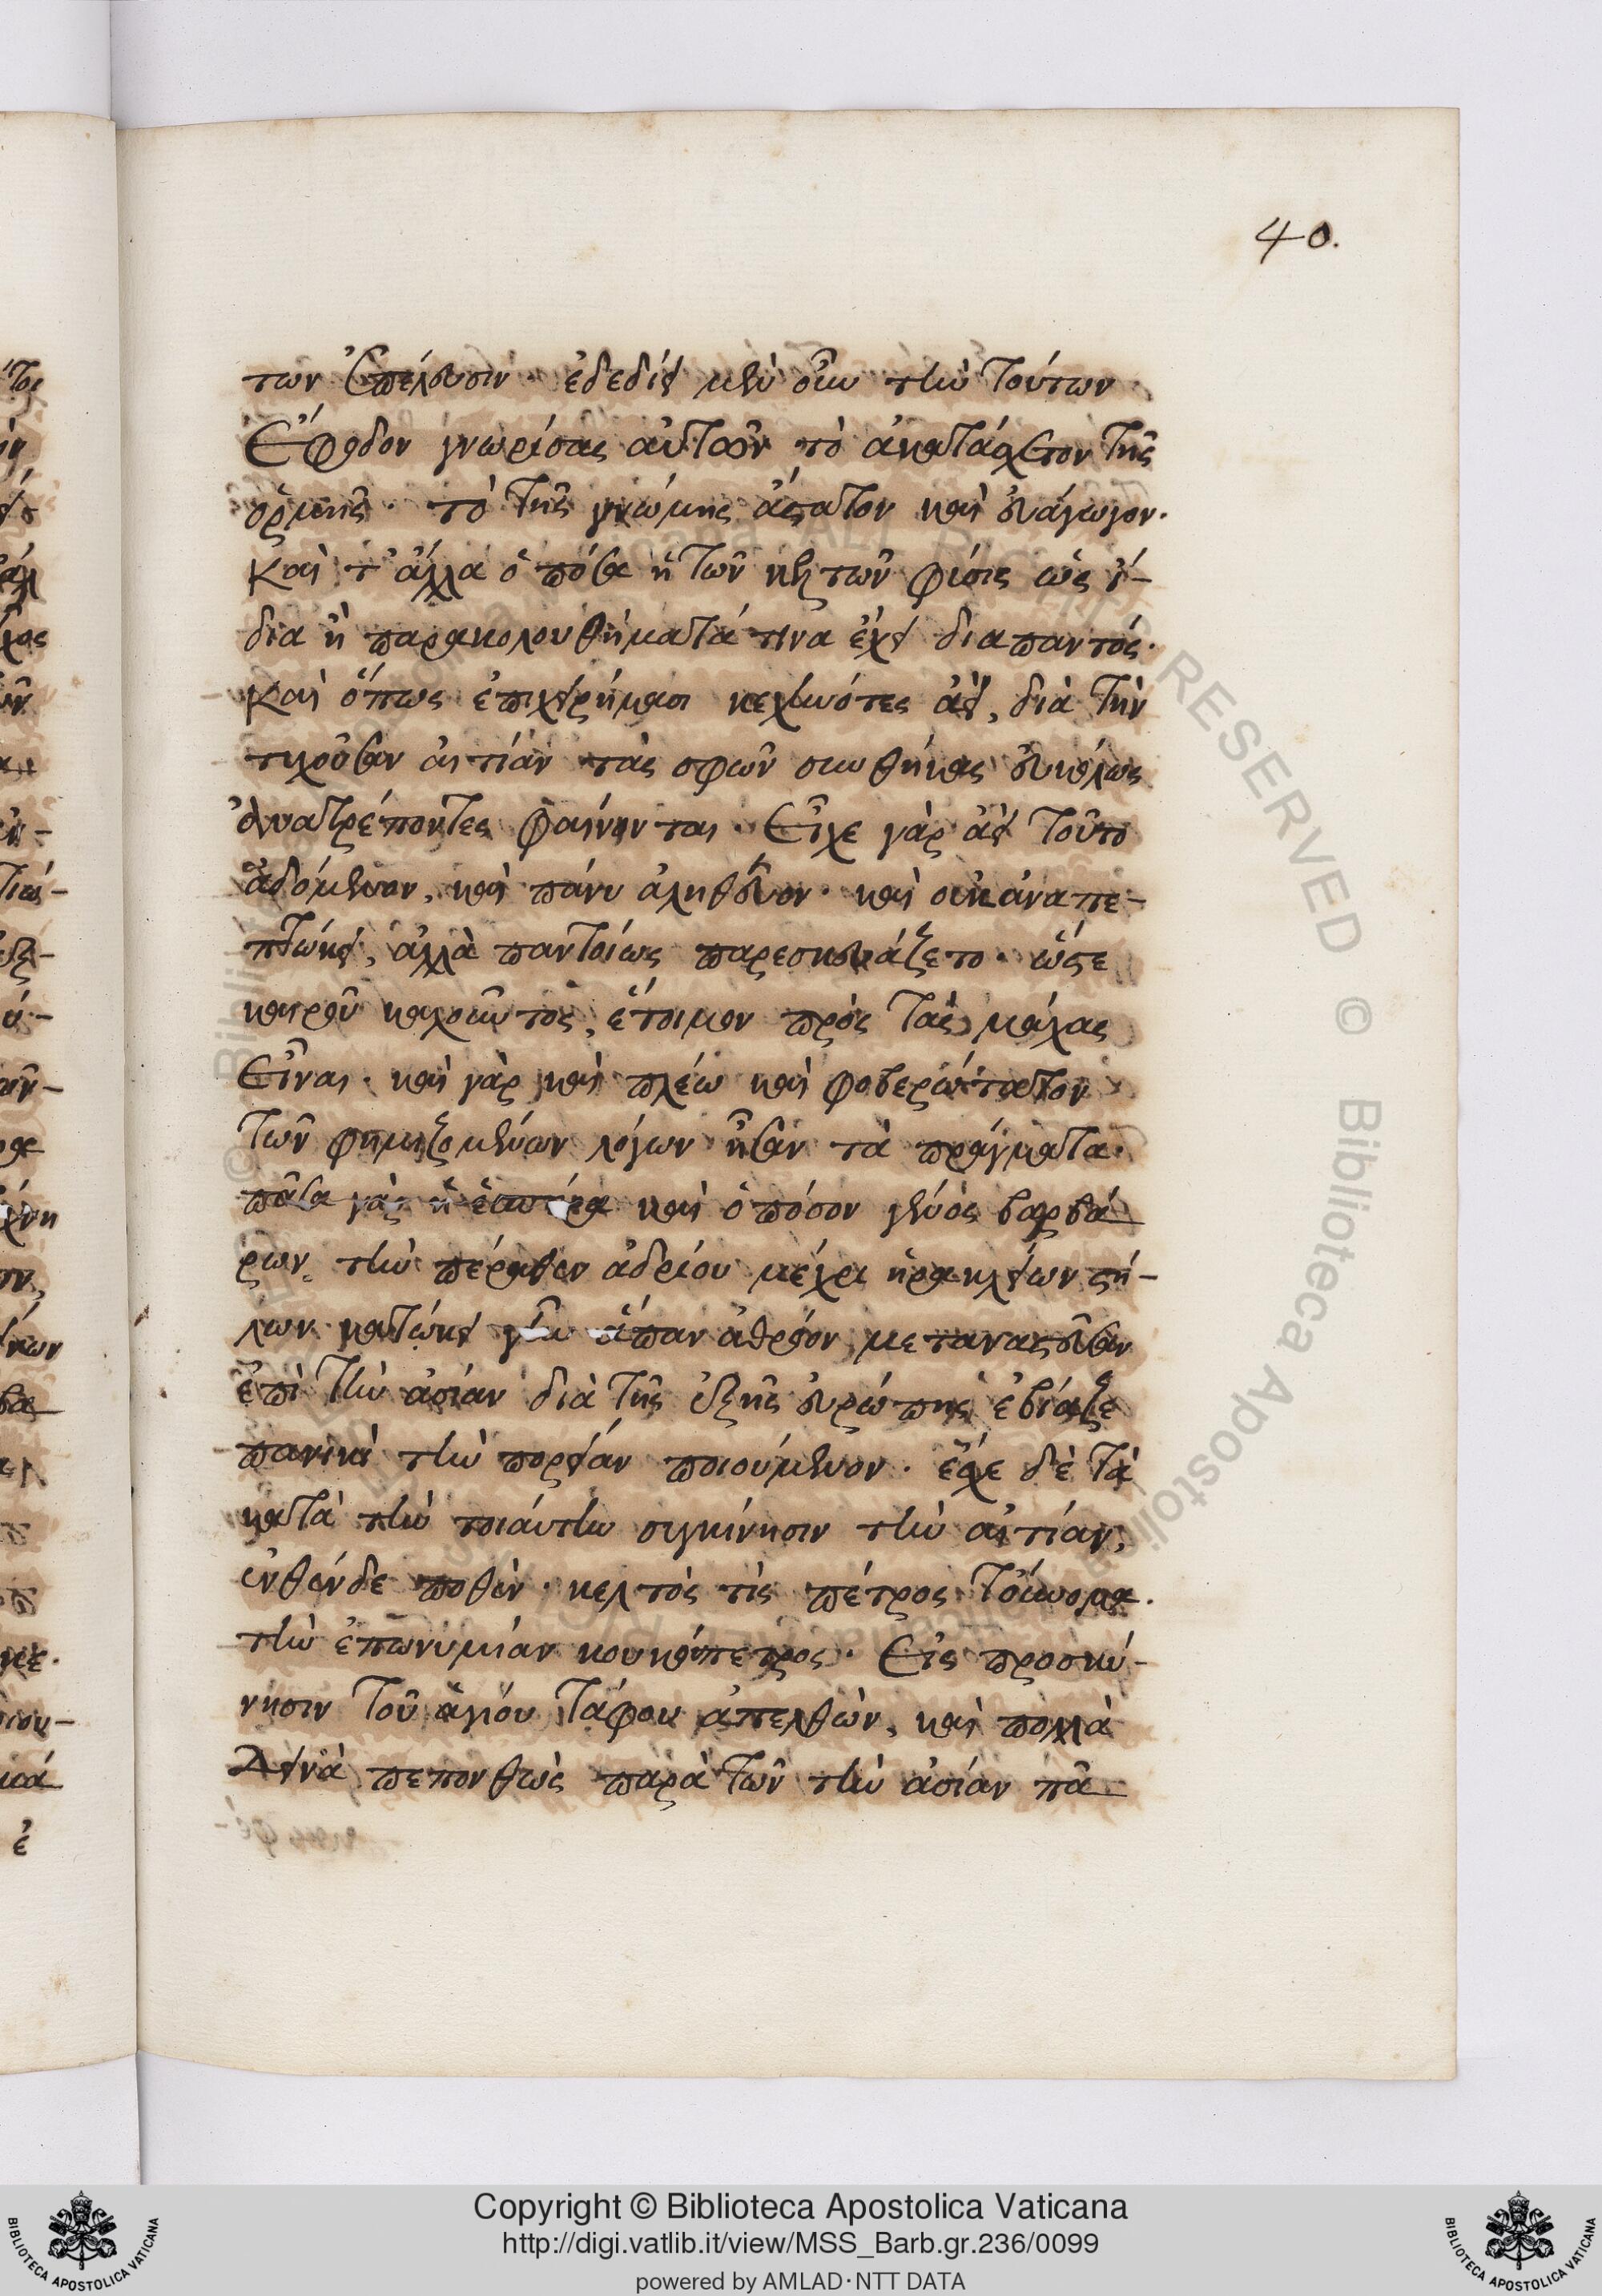 40.
των ἐπέλευσιν· ἐδεδίει μὲν οὖν τὴν τούτων
ἔφοδον γνωρίσας αὐτῶν τὸ ἀκατάσχετον τῆς
ὁρμῆς· τὸ τῆς γνώμης ἄστατον καὶ εὐάγωγον·
καὶ τ' ἄλλα ὁπόσα ἡ τῶν κελτῶν φύσις ὡς ἴ-
δια ἢ παρακολουθήματά τινα ἔχει διαπαντός·
καὶ ὅπως ἐπὶ χρήμασι κεχηνότες ἀεὶ, διὰ τὴν
τυχοῦσαν αἰτίαν τὰς σφῶν συνθήκας εὐκόλως
ἀνατρέποντες φαίνονται· εἶχε γὰρ ἀεὶ τοῦτο
ἀδόμενον, καὶ πάνυ ἀληθεῦον· καὶ οὐκ ἀναπε-
πτώκει, ἀλλὰ παντοίως παρεσκευάζετο· ὥστε
καιροῦ καλοῦντος, ἕτοιμον πρὸς τὰς μάχας
εἶναι· καὶ γὰρ καὶ πλέω καὶ φοβερώτατον
τῶν φημιζομένων λόγων ἦσαν τὰ πράγματα·
πᾶσα γὰρ ἡ ἑσπέρα καὶ ὁπόσον γένος βαρβά
ρων τὴν πέραθεν ἀδρίου μέχρι ἡρακλείων στή-
λων κατῴκει γῆν ἅπαν ἀθρόον μεταναστεῦσαν
ἐπὶ τὴν ἀσίαν διὰ τῆς ἑξῆς εὐρώπης ἐβίαζε
πανικὶ τὴν πορείαν ποιούμενον· ἔσχε δὲ τὰ
κατὰ τὴν τοιάυτην συγκίνησιν τὴν αἰτίαν,
ἐνθένδε ποθὲν· κελτός τίς πέτρος τοὔνομα·
τὴν ἐπωνυμίαν κουκούπετρος· εἰς προσκύ-
νησιν τοῦ ἁγίου τάφου ἀπελθὼν, καὶ πολλὰ
δεινὰ πεπονθὼς παρὰ τῶν τὴν ἀσίαν πᾶ
Copyright © Biblioteca Apostolica Vaticana
http://digi.vatlib.it/view/MSS_Barb.gr.236/0099
powered by AMLAD·NTT DATA